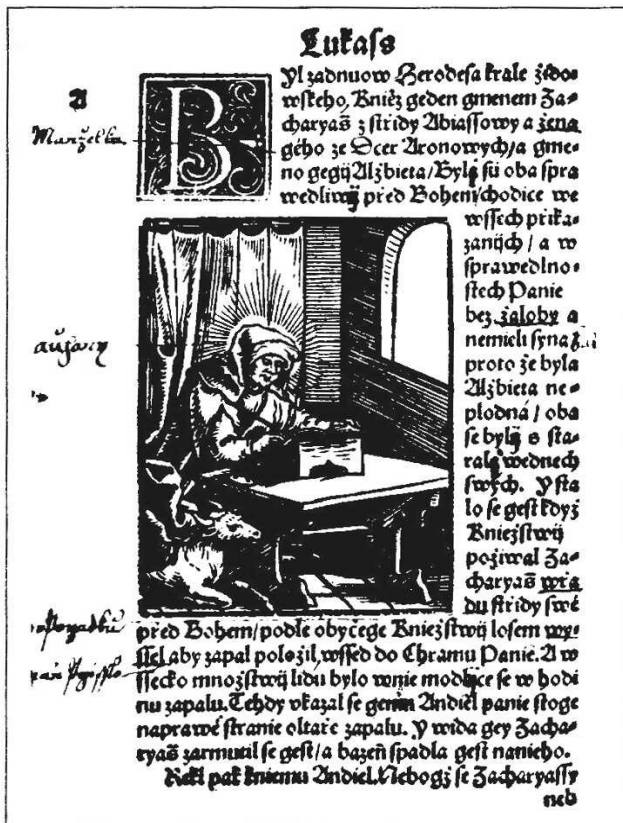 Lukass
BYl zadnuow Herodesa krale židow
wskeho, Kniěz geden gmenem Za-
charyaš z střidy Abiassowy a žena
gého ze Dcer Aronowych/a gme-
no gegij Alžbieta/Bylj sú oba spra
wedliwij před Bohem/chodice we
wssech přika-
zanijch / a w
sprawedlno-
stech Panie
bez žaloby a
nemieli syna
proto že byla
Alžbieta ne-
plodná / oba
se bylj s sta-
ralj wednech
swých. Y sta
lo se gest když
Kniežstwij
požiwal Za-
charyaš wřa
du střidy swé
před Bohem/podle obyčege Kniežstwij losem wy-
ssel, aby zapal položil, wssed do Chramu Panie. A w
ssecko množstwij lidu bylo wnie modljce se w hodi
nu zapalu. Tehdy vkazal se gemu Andiel panie stoge
naprawé stranie oltaře zapalu. Y wida gey Zacha-
ryaš zarmutil se gest/a bazeň spadla gest nanieho.
Rekl pak kniemu Andiel. Nebogž se Zacharyassy
neb
A
Manželka